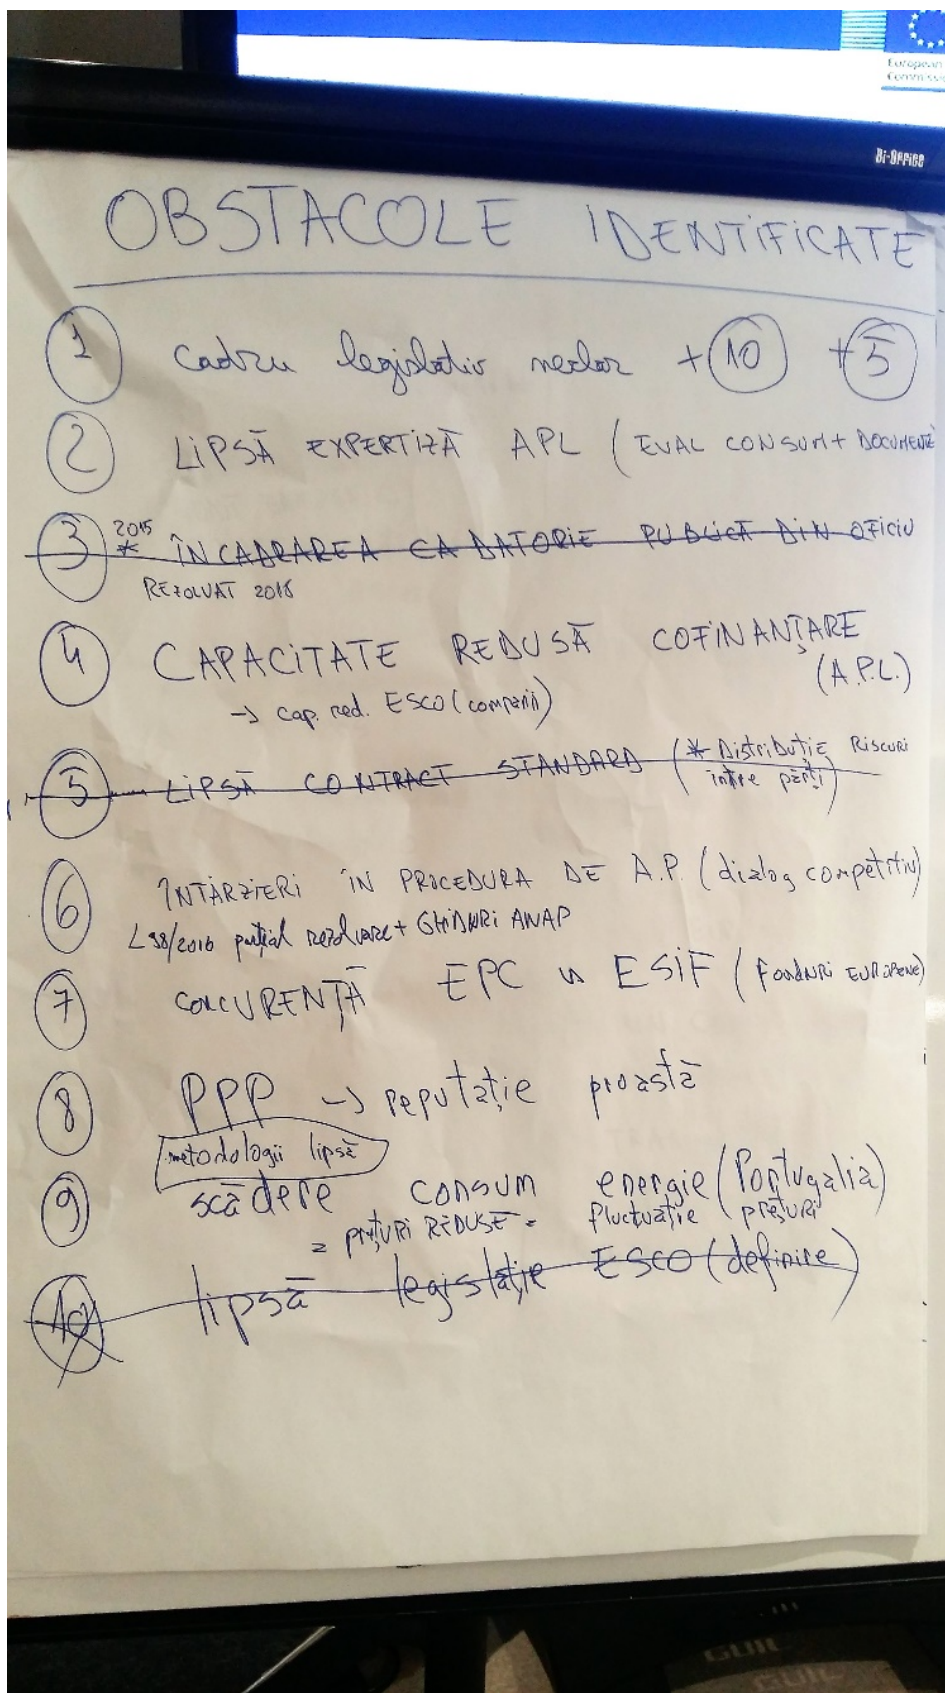 European
Commission
Bi-Office
OBSTACOLE IDENTIFICATE
1 cadru legislativ neclar + 10 + 5
2 LIPSĂ EXPERTIZĂ APL (EVAL CONSUM + DOCUMENTE
3 2015 * ÎNCADRAREA CA DATORIE PUBLICĂ DIN OFICIU
REZOLVAT 2018
4 CAPACITATE REDUSĂ COFINANȚARE
(A.P.L.)
→ cap. red. ESCO (companii)
5 LIPSĂ CONTRACT STANDARD (* DISTRIBUȚIE RISCURI
între părți)
6 ÎNTÂRZIERI ÎN PROCEDURA DE A.P. (dialog competitiv)
L98/2016 parțial rezolvare + GHIDURI ANAP
7 CONCURENȚĂ EPC vs ESIF (FONDURI EUROPENE)
8 PPP → reputație proastă
metodologii lipsă
9 scădere consum energie (Portugalia)
= prețuri REDUSE = fluctuație prețuri
10 lipsă legislație ESCO (definire)
GUIL
GUIL